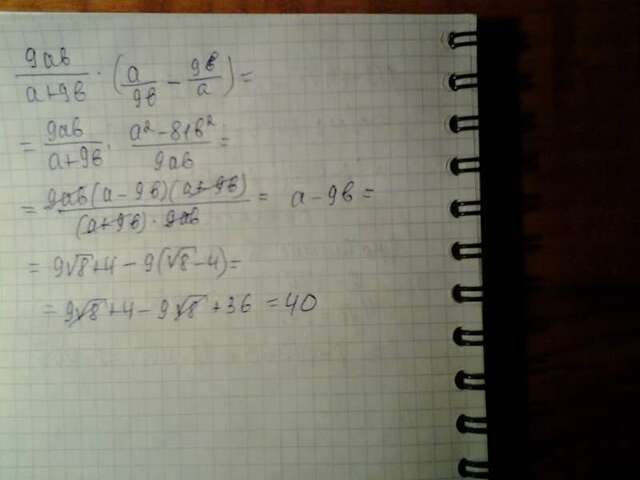 9ab/(a+9b) · (a/9b − 9b/a) =
= 9ab/(a+9b) · (a² − 81b²)/9ab =
= 9ab(a − 9b)(a+9b)/((a+9b) · 9ab) = a − 9b =
= 9√8+4 − 9(√8 − 4) =
= 9√8 + 4 − 9√8 + 36 = 40